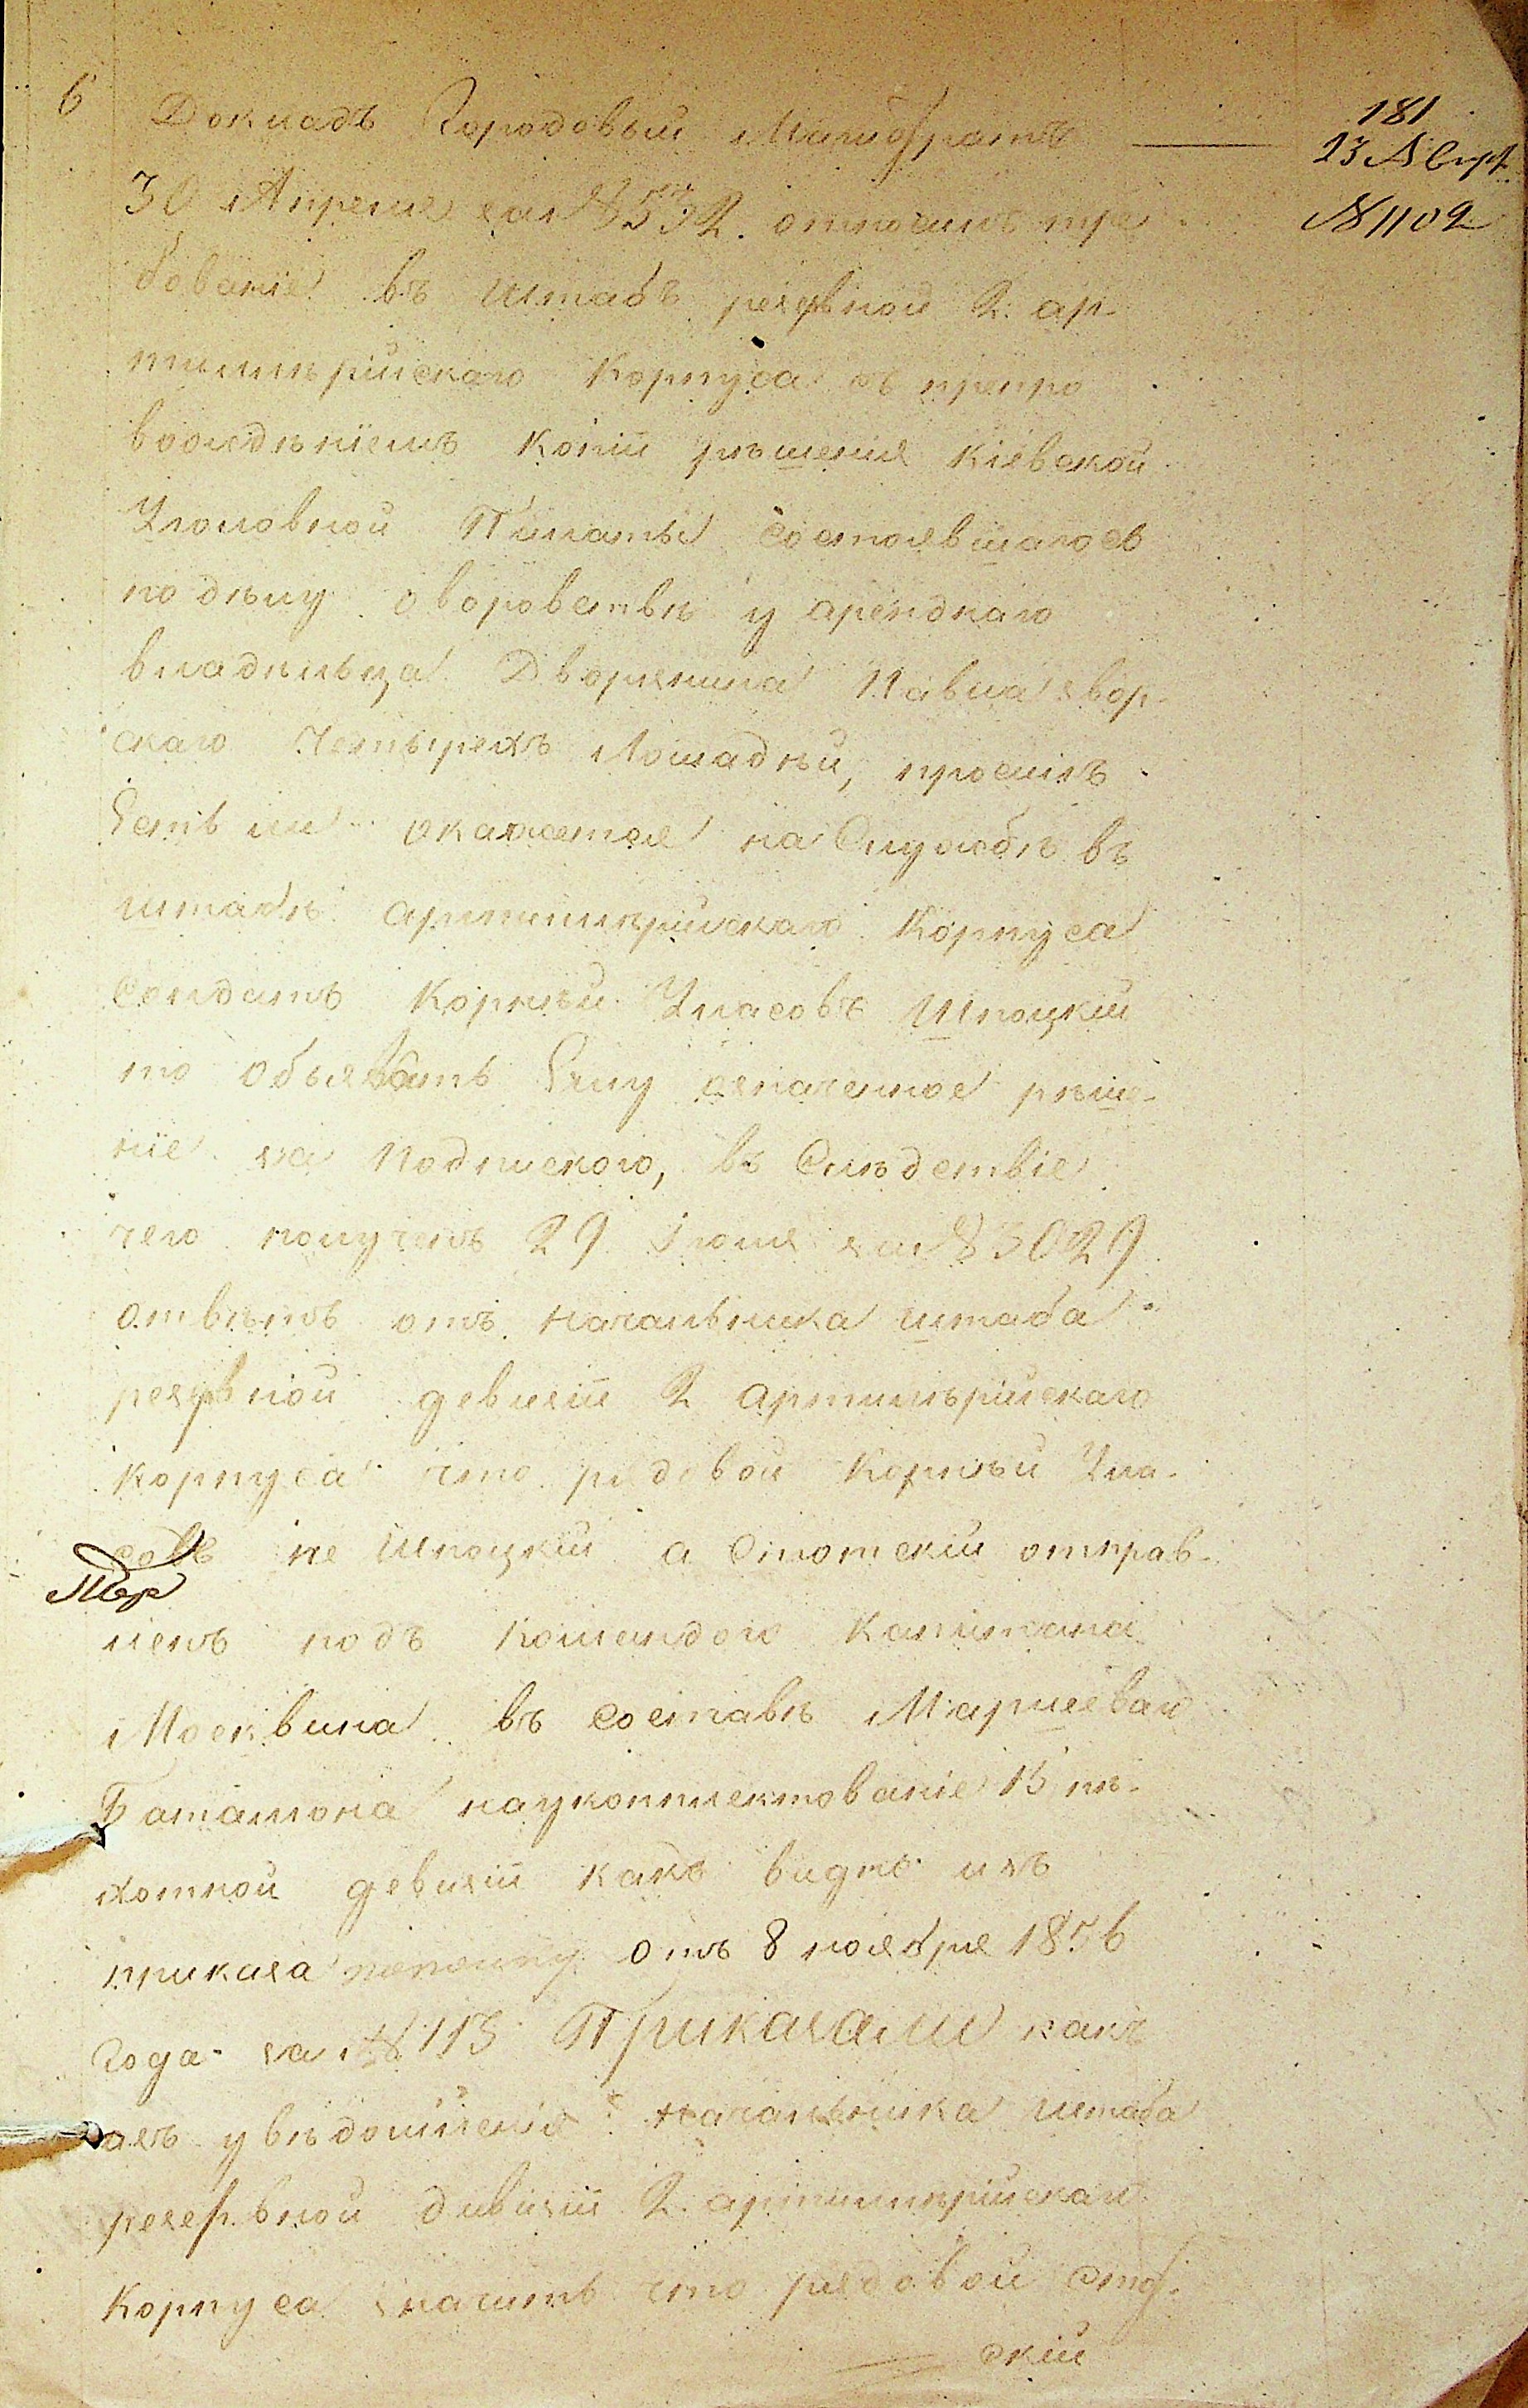 6
181
13 Авгус
№ 1102
Докладъ Городовый Магистратъ
30 Апреля за № 532. относилъ тре
бованіе въ Штабъ резервной 2. ар-
тиллѣрійскаго Корпуса съ препро
вождѣніемъ Копіи рѣшенія Кіевской
Уголовной Палаты состоявшагось
по дѣлу о воровствѣ у арендкаго
владѣльца Дворянина Павла явор-
скаго четырехъ Лошадѣй, просилъ
Есть ли окажется на Службѣ въ
штабѣ артиллѣрійскаго Корпуса
Солдатъ Корнѣй Уласовъ Шпоцкій
то объявить Ему означенное рѣше-
ніе за Подпискою, въ Слѣдствіе
чего получено 29 Іюля за № 3029
отвѣтъ отъ Начальника штаба
резервной девизіи 2 артиллѣрійскаго
Корпуса что рядовой Корнѣй Ула-
совъ не Шпоцкій а Стотскій отправ-
ленъ подъ Командою Капитана
Москвина въ составѣ Маршеваго
Баталіона на укоплектованіе 15 пѣ-
хотной девизіи какъ видно изъ
приказа отъ 8 ноября 1856
года за № 113 Приказали какъ
изъ увѣдомленія Начальника штаба
резервной дивизіи 2 артиллѣрійскаго
Корпуса значитъ что рядовой Стот-
скій